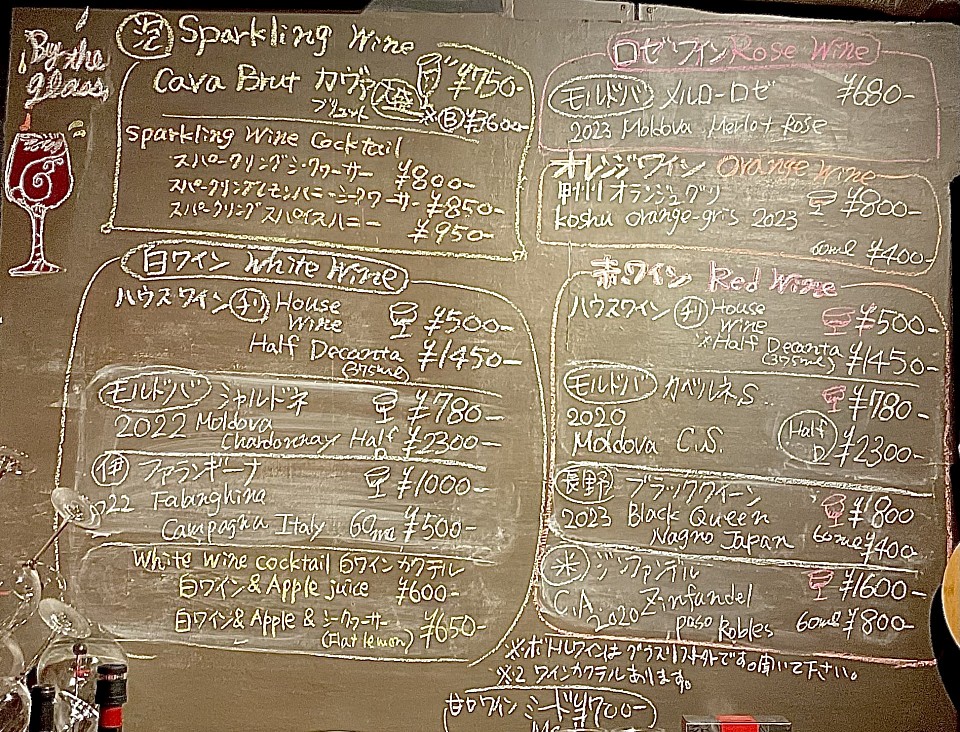 By the
glass
泡 Sparkling Wine
Cava Brut カヴァ ¥750-
ブリュット ※Ⓑ ¥3600-
Sparkling Wine Cocktail
スパークリングシークワーサー ¥800-
スパークリングレモンハニーシークワーサー ¥850-
スパークリングスパイスハニー ¥950-
白ワイン White Wine
ハウスワイン チリ House
Wine ¥500-
Half Decanta ¥1450-
(375ml)
モルドバ シャルドネ ¥780-
2022 Moldova
Chardonnay Half D ¥2300-
伊 ファランギーナ ¥1000-
2022 Falanghina
Campagna Italy 60ml ¥500-
White Wine cocktail 白ワインカクテル
白ワイン & Apple juice ¥600-
白ワイン & Apple & シークワーサー ¥650-
(Flat lemon)
ロゼワイン Rose Wine
モルドバ メルローロゼ ¥680-
2023 Moldova Merlot Rose
オレンジワイン Orange Wine
甲州 オランジュグリ ¥800-
Koshu orange-gris 2023
60ml ¥400-
赤ワイン Red Wine
ハウスワイン チリ House
Wine ¥500-
※Half Decanta ¥1450-
(375ml)
モルドバ カベルネS. ¥780-
2020
Moldova C.S. Half D ¥2300-
長野 ブラッククイーン ¥800
2023 Black Queen
Nagno Japan 60ml ¥400-
米 ジンファンデル ¥1600-
C.A. 2020 Zinfandel
paso Robles 60ml ¥800-
※ボトルワインはグラスリスト外です。聞いて下さい。
※2 ワインカクテルあります。
甘口ワイン ミード ¥700-